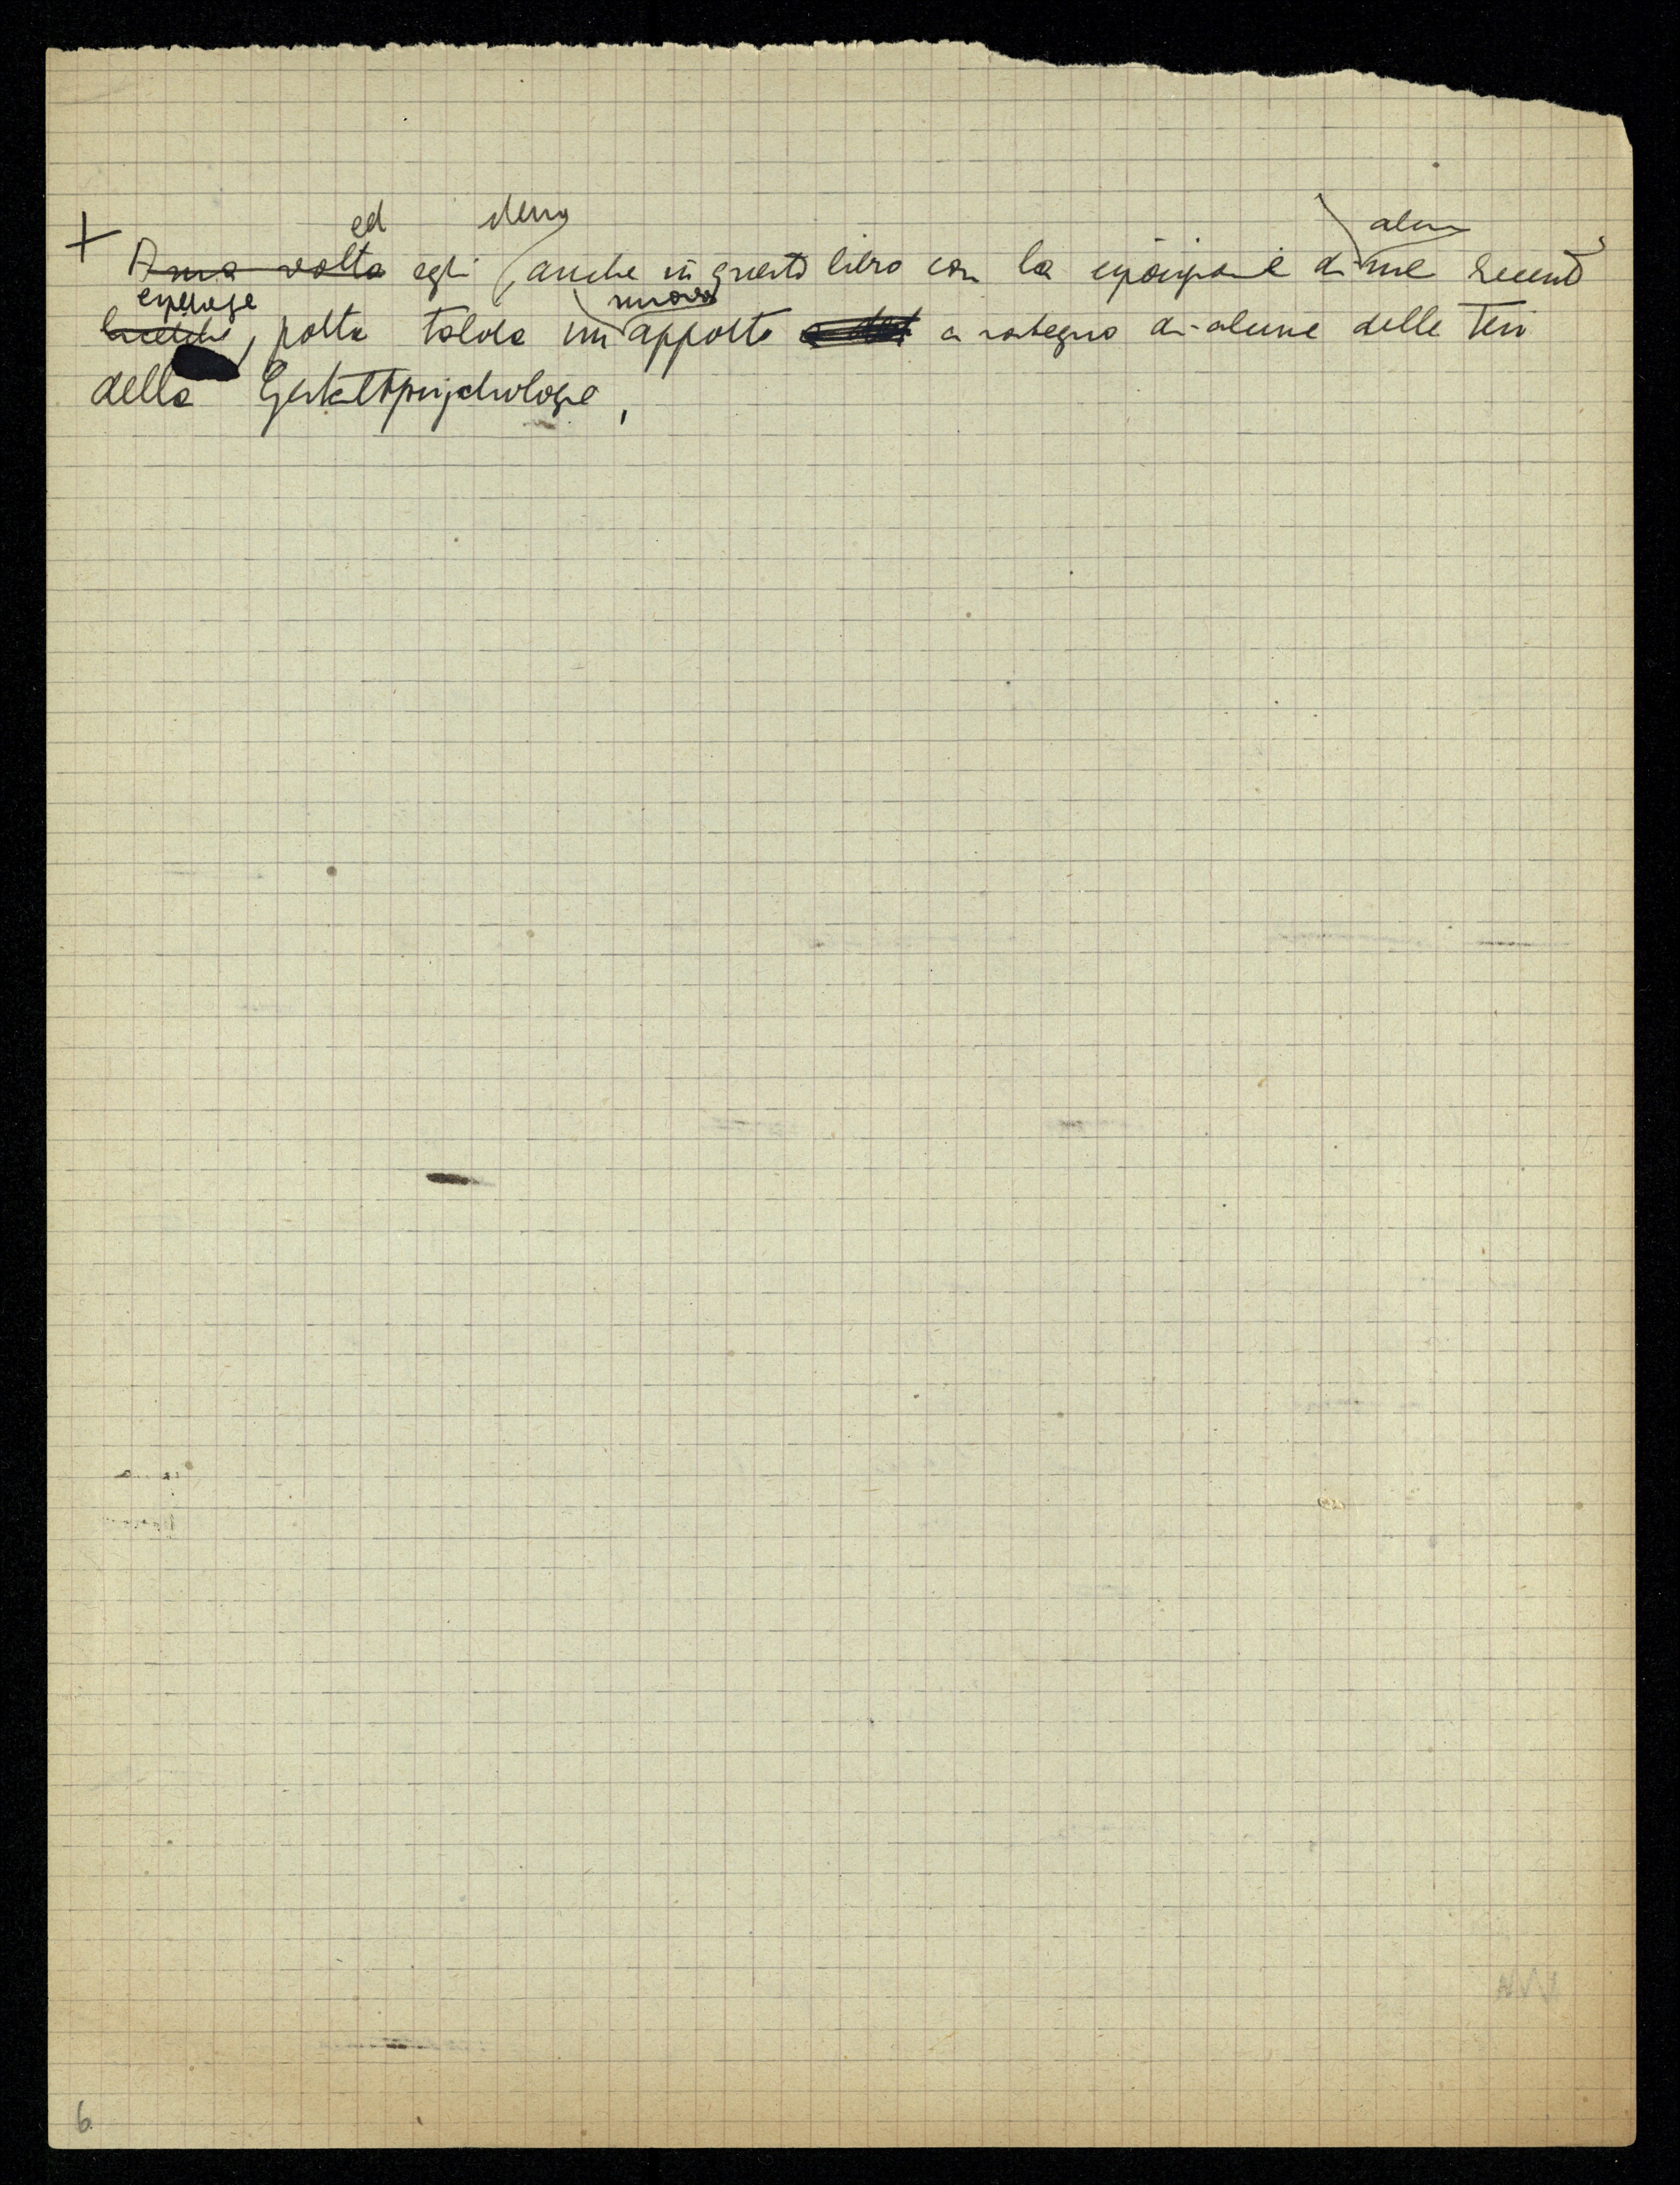 ed
+ A sua volta egli, anche in questo libro con la esposizione di sue recenti
esperienze
nuovo
, porta talora un apporto a sostegno di alcune delle tesi
della Gestaltpsychologie,
6